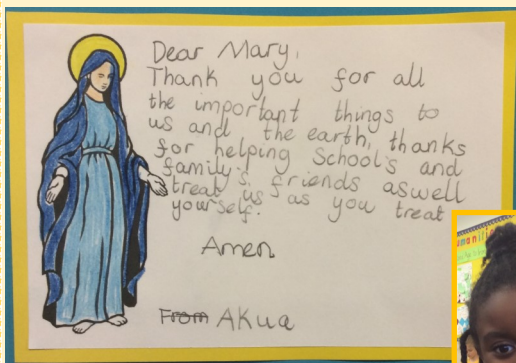 Dear Mary,
Thank you for all
the important things to
us and the earth, thanks
for helping School's and
family's, friends aswell
treat us as you treat
yourself.
Amen
From Akua
umaniti